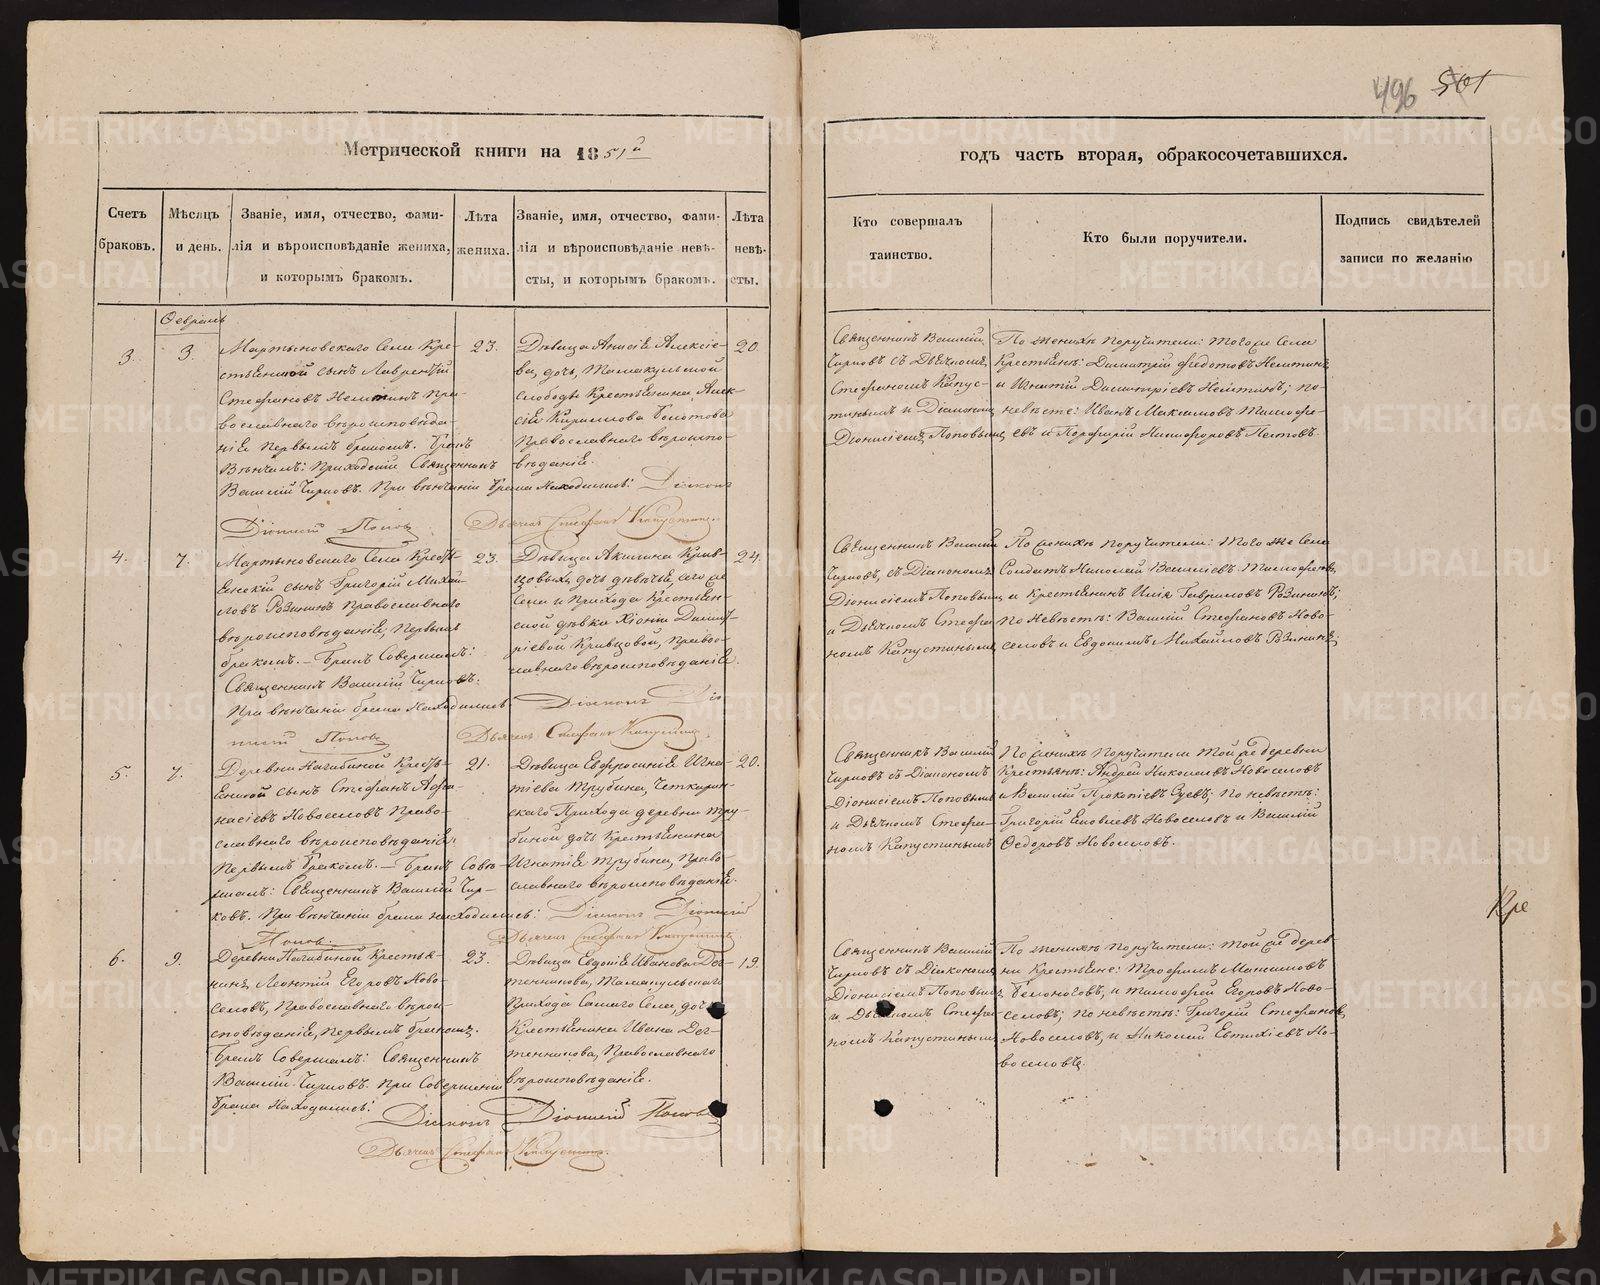 496 501
Метрической книги на 1851й
годъ часть вторая, обракосочетавшихся.
Счетъ браковъ.
Мѣсяцъ и день.
Званіе, имя, отчество, фами-
лія и вѣроисповѣданіе жениха,
и которымъ бракомъ.
Лѣта жениха.
Званіе, имя, отчество, фами-
лія и вѣроисповѣданіе невѣ-
сты, и которымъ бракомъ.
Лѣта невѣ-
сты.
Кто совершалъ
таинство.
Кто были поручители.
Подпись свидѣтелей
записи по желанію
Февраль
3. 3.
Мартыновскаго Села Кре-
стьянской сынъ Лаврентій
Стефановъ православнаго вѣроисповѣда-
ніе первымъ бракомъ. Бракъ
Вѣнчалъ: Приходскій Священникъ
Василій Чирковъ. При вѣнчаніи брака находились: Діаконъ
Діонисій Поповъ
Дьячекъ Стефанъ Капустинъ.
23.
Дѣвица Анисія Алексіе-
ва, дочь, Тамакульской
слободы Крестьянина Алек-
сія Кириллова Болотова
Православнаго вѣроиспо-
вѣданіе.
20.
Священникъ Василій
Чирковъ съ Дьячкомъ
Стефаномъ Капус-
тинымъ и Діакономъ
Діонисіемъ Поповымъ
По женихѣ поручители: того же Села
Крестьяне: Димитрій Федотовъ
и Игнатій Димитріевъ по
невѣстѣ: Иванъ Максимовъ Тимофе-
евъ и Порфирій Никифоровъ Пестовъ.
4. 7.
Мартыновскаго Села Кресть-
янскій сынъ Григорій Михай-
ловъ Православнаго
вѣроисповѣданіе, Первымъ
бракомъ. – Бракъ Совершалъ:
Священникъ Василій Чирковъ.
При вѣнчаніи брака находились: Діаконъ Діо-
нисій Поповъ
Дьячекъ Стефанъ Капустинъ.
23.
Дѣвица Акилина Крив-
цовыхъ, дочь дѣвичья, того же
Села и Прихода Крестьян-
ской дѣвки Хіоніи Димит-
ріевой Кривцовой, Правос-
лавнаго вѣроисповѣданіе.
24.
Священникъ Василій
Чирковъ, съ Діакономъ
Діонисіемъ Поповымъ
и Дьячкомъ Стефа-
номъ Капустинымъ
По женихѣ поручители: того же Села
Солдатъ Николай Василіевъ Тимофеевъ,
и Крестьянинъ Илія Гавриловъ
по Невѣстѣ: Василій Стефановъ Ново-
селовъ и Евдокимъ Михайловъ
5. 7.
Деревни Нагибиной Кресть-
янской сынъ Стефанъ Афа-
насіевъ Новоселовъ Право-
славнаго вѣроисповѣданіе.
Первымъ бракомъ. – Бракъ Совер-
шалъ: Священникъ Василій Чир-
ковъ. При вѣнчаніи брака находились: Діаконъ Діонисій
Поповъ.
Дьячекъ Стефанъ Капустинъ.
21.
Дѣвица Евфросинія Игна-
тіева Трубина,
скаго Прихода деревни Тру-
биной дочь Крестьянина
Игнатія Трубина, Право-
славнаго вѣроисповѣданіе.
20.
Священникъ Василій
Чирковъ съ Діакономъ
Діонисіемъ Поповымъ
и Дьячкомъ Стефа-
номъ Капустинымъ
По женихѣ поручители той же деревни
Крестьяне: Андрей Николаевъ Новоселовъ
и Василій Прокопіевъ Зуевъ; по невѣстѣ:
Григорій Яковлевъ Новоселовъ и Василій
Федоровъ Новоселовъ.
Кре
6. 9.
Деревни Нагибиной Крестья-
нинъ, Леонтій Егоровъ Ново-
селовъ, Православнаго вѣрои-
сповѣданіе, первымъ бракомъ.
Бракъ Совершалъ: Священникъ
Василій Чирковъ. При Совершеніи
брака находились: Діаконъ Діонисій Поповъ
Дьячекъ Стефанъ Капустинъ.
23.
Дѣвица Евдокія Иванова Дег-
тенникова, Тамакульскаго
Прихода Самаго Села, дочь
Крестьянина Ивана Дег-
тенникова, Православнаго
вѣроисповѣданіе.
19.
Священникъ Василій
Чирковъ съ Діакономъ
Діонисіемъ Поповымъ
и Дьячкомъ Стефа-
номъ Капустинымъ
По женихѣ поручители: той же дерев-
ни Крестьяне: Трофимъ Максимовъ
Белоноговъ, и Тимофей Егоровъ Ново-
селовъ; по невѣстѣ: Григорій Стефановъ
Новоселовъ, и Николай Евтихіевъ Но-
воселовъ.
METRIKI.GASO-URAL.RU